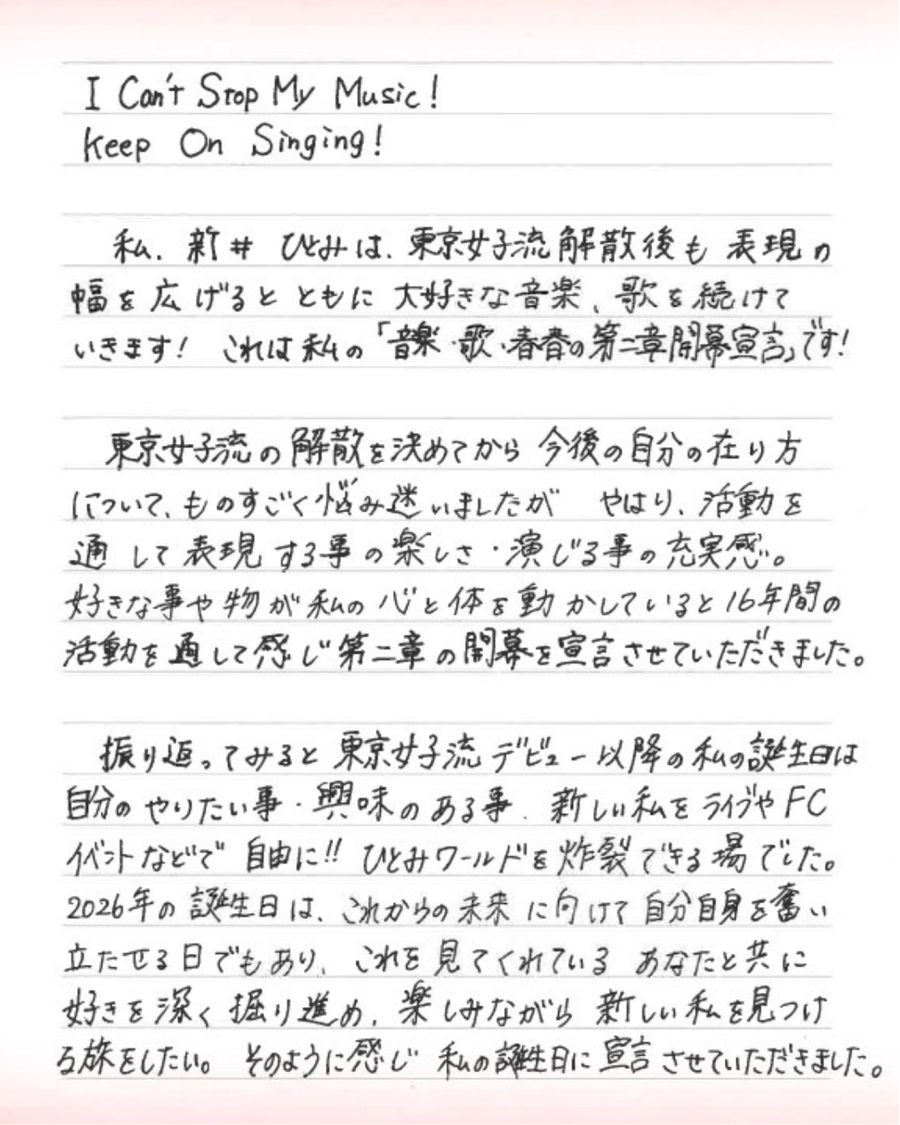 I Can't Stop My Music!
Keep On Singing!
私、新井 ひとみは、東京女子流解散後も 表現の
幅を広げると ともに 大好きな音楽、歌を続けて
いきます! これは私の「音楽・歌・春春の第二章開幕宣言」です!
東京女子流の解散を決めてから 今後の自分の在り方
について、ものすごく悩み迷いましたが やはり、活動を
通して表現する事の楽しさ・演じる事の充実感。
好きな事や物が私の心と体を動かしていると16年間の
活動を通して感じ第二章の開幕を宣言させていただきました。
振り返ってみると 東京女子流デビュー以降の私の誕生日は
自分のやりたい事・興味のある事、新しい私をライブやFC
イベントなどで 自由に!! ひとみワールドを炸裂できる場でした。
2026年の誕生日は、これからの未来に向けて自分自身を奮い
立たせる日でもあり、これを見てくれている あなたと共に
好きを深く掘り進め、楽しみながら 新しい私を見つけ
る旅をしたい。 そのように感じ 私の誕生日に宣言させていただきました。